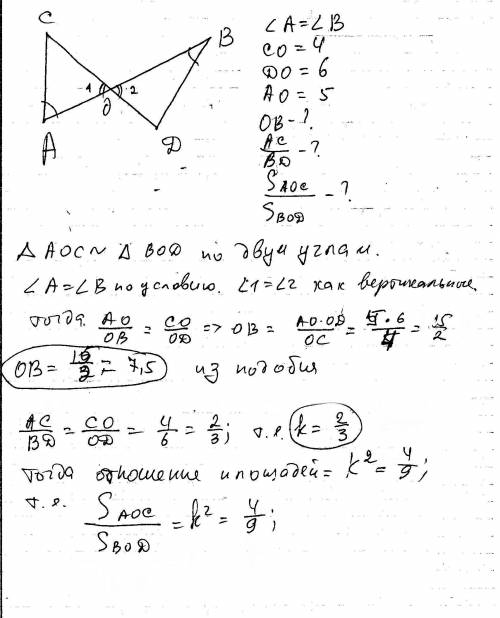 C
B
1
2
O
A
D
∠A=∠B
CO = 4
DO = 6
AO = 5
OB - ?
AC/BD - ?
S AOC / S BOD - ?
Δ AOC ~ Δ BOD по двум углам.
∠A=∠B по условию. ∠1=∠2 как вертикальные.
тогда AO/OB = CO/OD => OB = AO·OD/OC = 5·6/4 = 15/2
OB = 15/2 = 7,5 из подобия
AC/BD = CO/OD = 4/6 = 2/3; т.е. k = 2/3
тогда отношение площадей = k² = 4/9;
т.е. S AOC / S BOD = k² = 4/9;